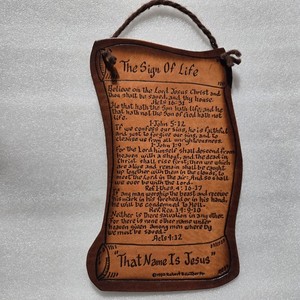 The Sign Of Life
Believe on the Lord Jesus Christ and
thou shalt be saved, and thy house.
Acts 16:31
He that hath the Son hath life; and he
that hath not the Son of God hath not
life.
1 John 5:12
If we confess our sins, he is faithful
and just to forgive our sins, and to
cleanse us from all unrighteousness.
1 John 1:9
For the Lord himself shall descend from
heaven with a shout, and the dead in
Christ shall rise first; then we which
are alive and remain shall be caught
up together with them in the clouds, to
meet the Lord in the air: And so shall
we ever be with the Lord.
4:16-17
If any man worship the beast and receive
his mark in his forehead or in his hand,
he will be condemned to Hell.
Rev. 14:9-10
Neither is there salvation in any other,
for there is none other name under
heaven given among men where by
we must be saved.
Acts 4:12
"That Name Is Jesus"